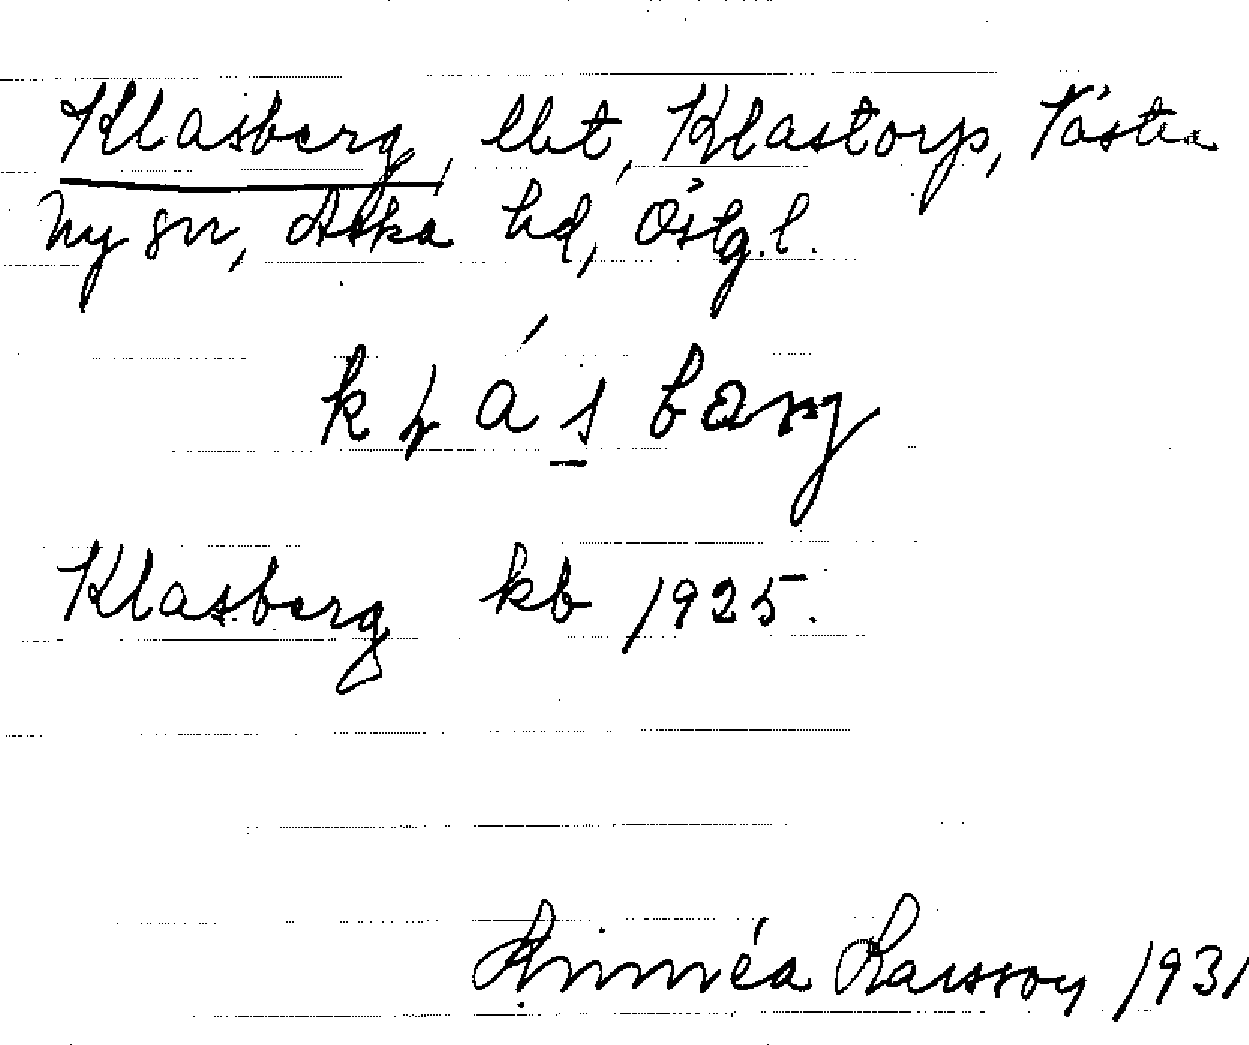 Klasberg, lht, Klastorp, Västra
Ny sn, Aska hd, Östg.l.
Klasberg kb 1925.
Linnéa Larsson 1931